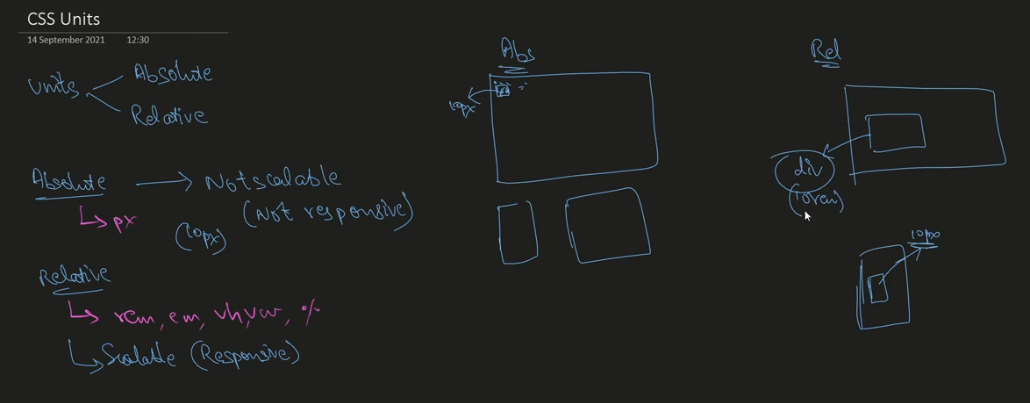 CSS Units
14 September 2021 12:30
Units
Absolute
Relative
Absolute → Not scalable
(Not responsive)
px
(10px)
Relative
rem, em, vh, vw, %
Scalable (Responsive)
Abs
10px
Rel
div
10px